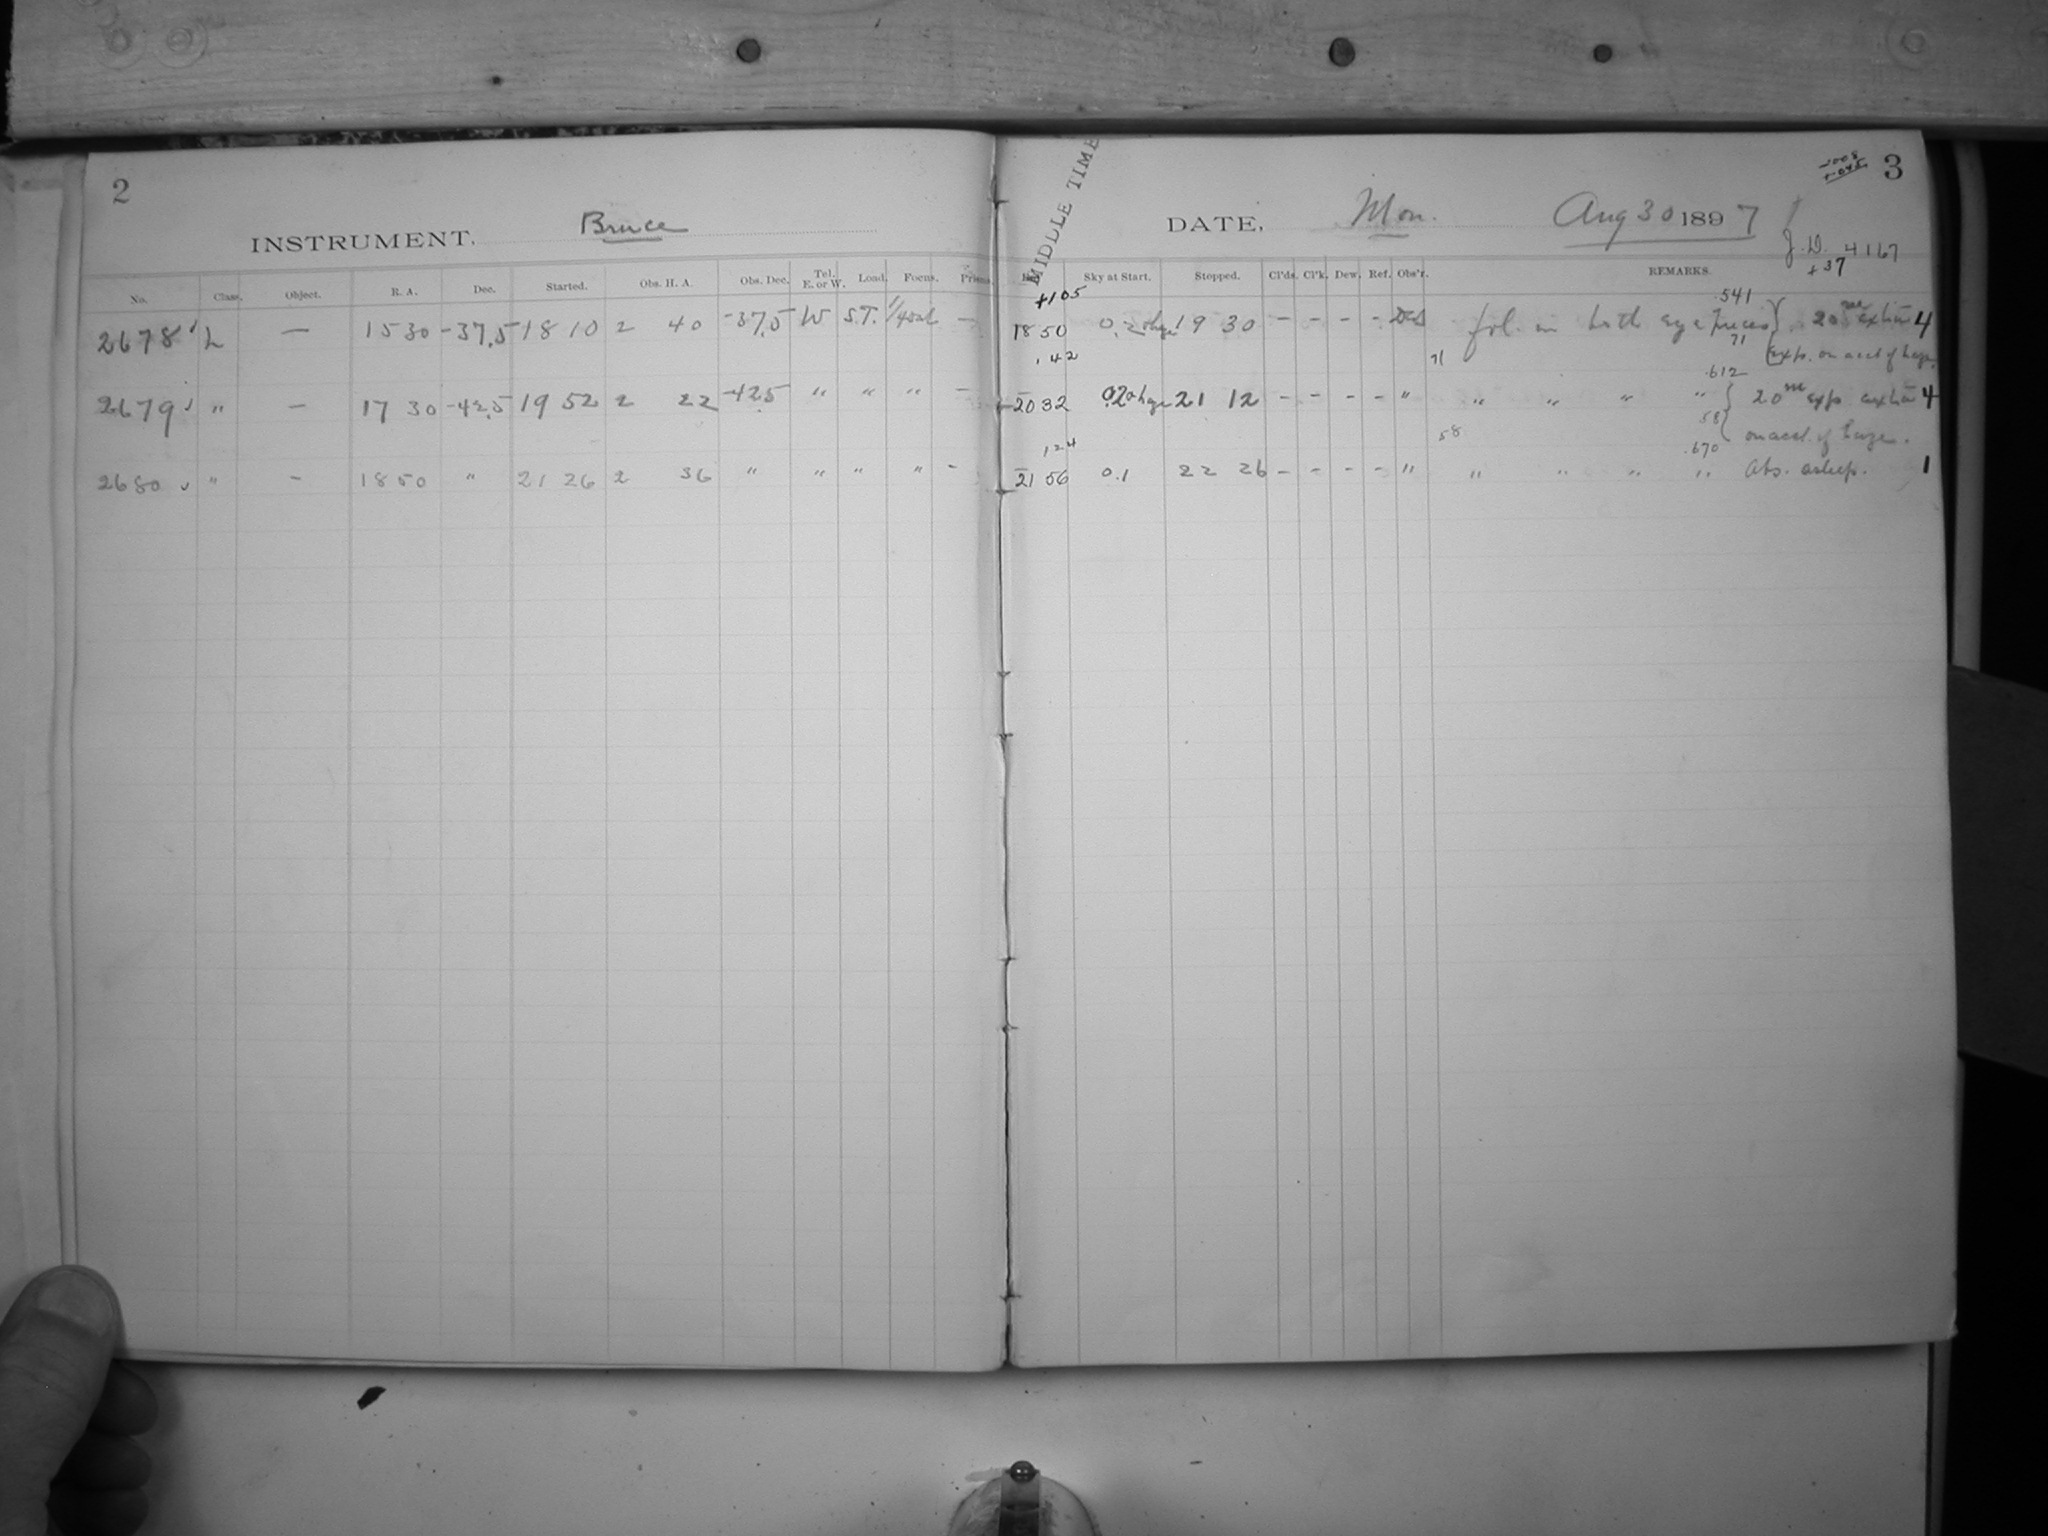 2
INSTRUMENT, Bruce
No. Class. Object. R. A. Dec. Started. Obs. H. A. Obs. Dec. Tel. E. or W. Load. Focus. Prism.
2678 L — 15 30 -37.5 18 10 2 40 -37.5 W S.T. —
2679 " — 17 30 -42.5 19 52 2 22 -42.5 " " " —
2680 " — 18 50 " 21 26 2 36 " " " " -
3
MIDDLE TIME
DATE, Mon. Aug 30 1897
J.D. 4167
+37
Sky at Start. Stopped. Cl'ds. Cl'k. Dew. Ref. Obs'r. REMARKS.
+1 05 .541
18 50 19 30 - - - - fol. in both eye pieces } 20 4
.42 71 71 exp. on acct of haze.
.612
20 32 21 12 - - - - " " " " " { 20m exp. 4
1 24 58 58 on acct. of haze.
.670
21 56 0.1 22 26 - - - - " " " " " Obs. asleep. 1